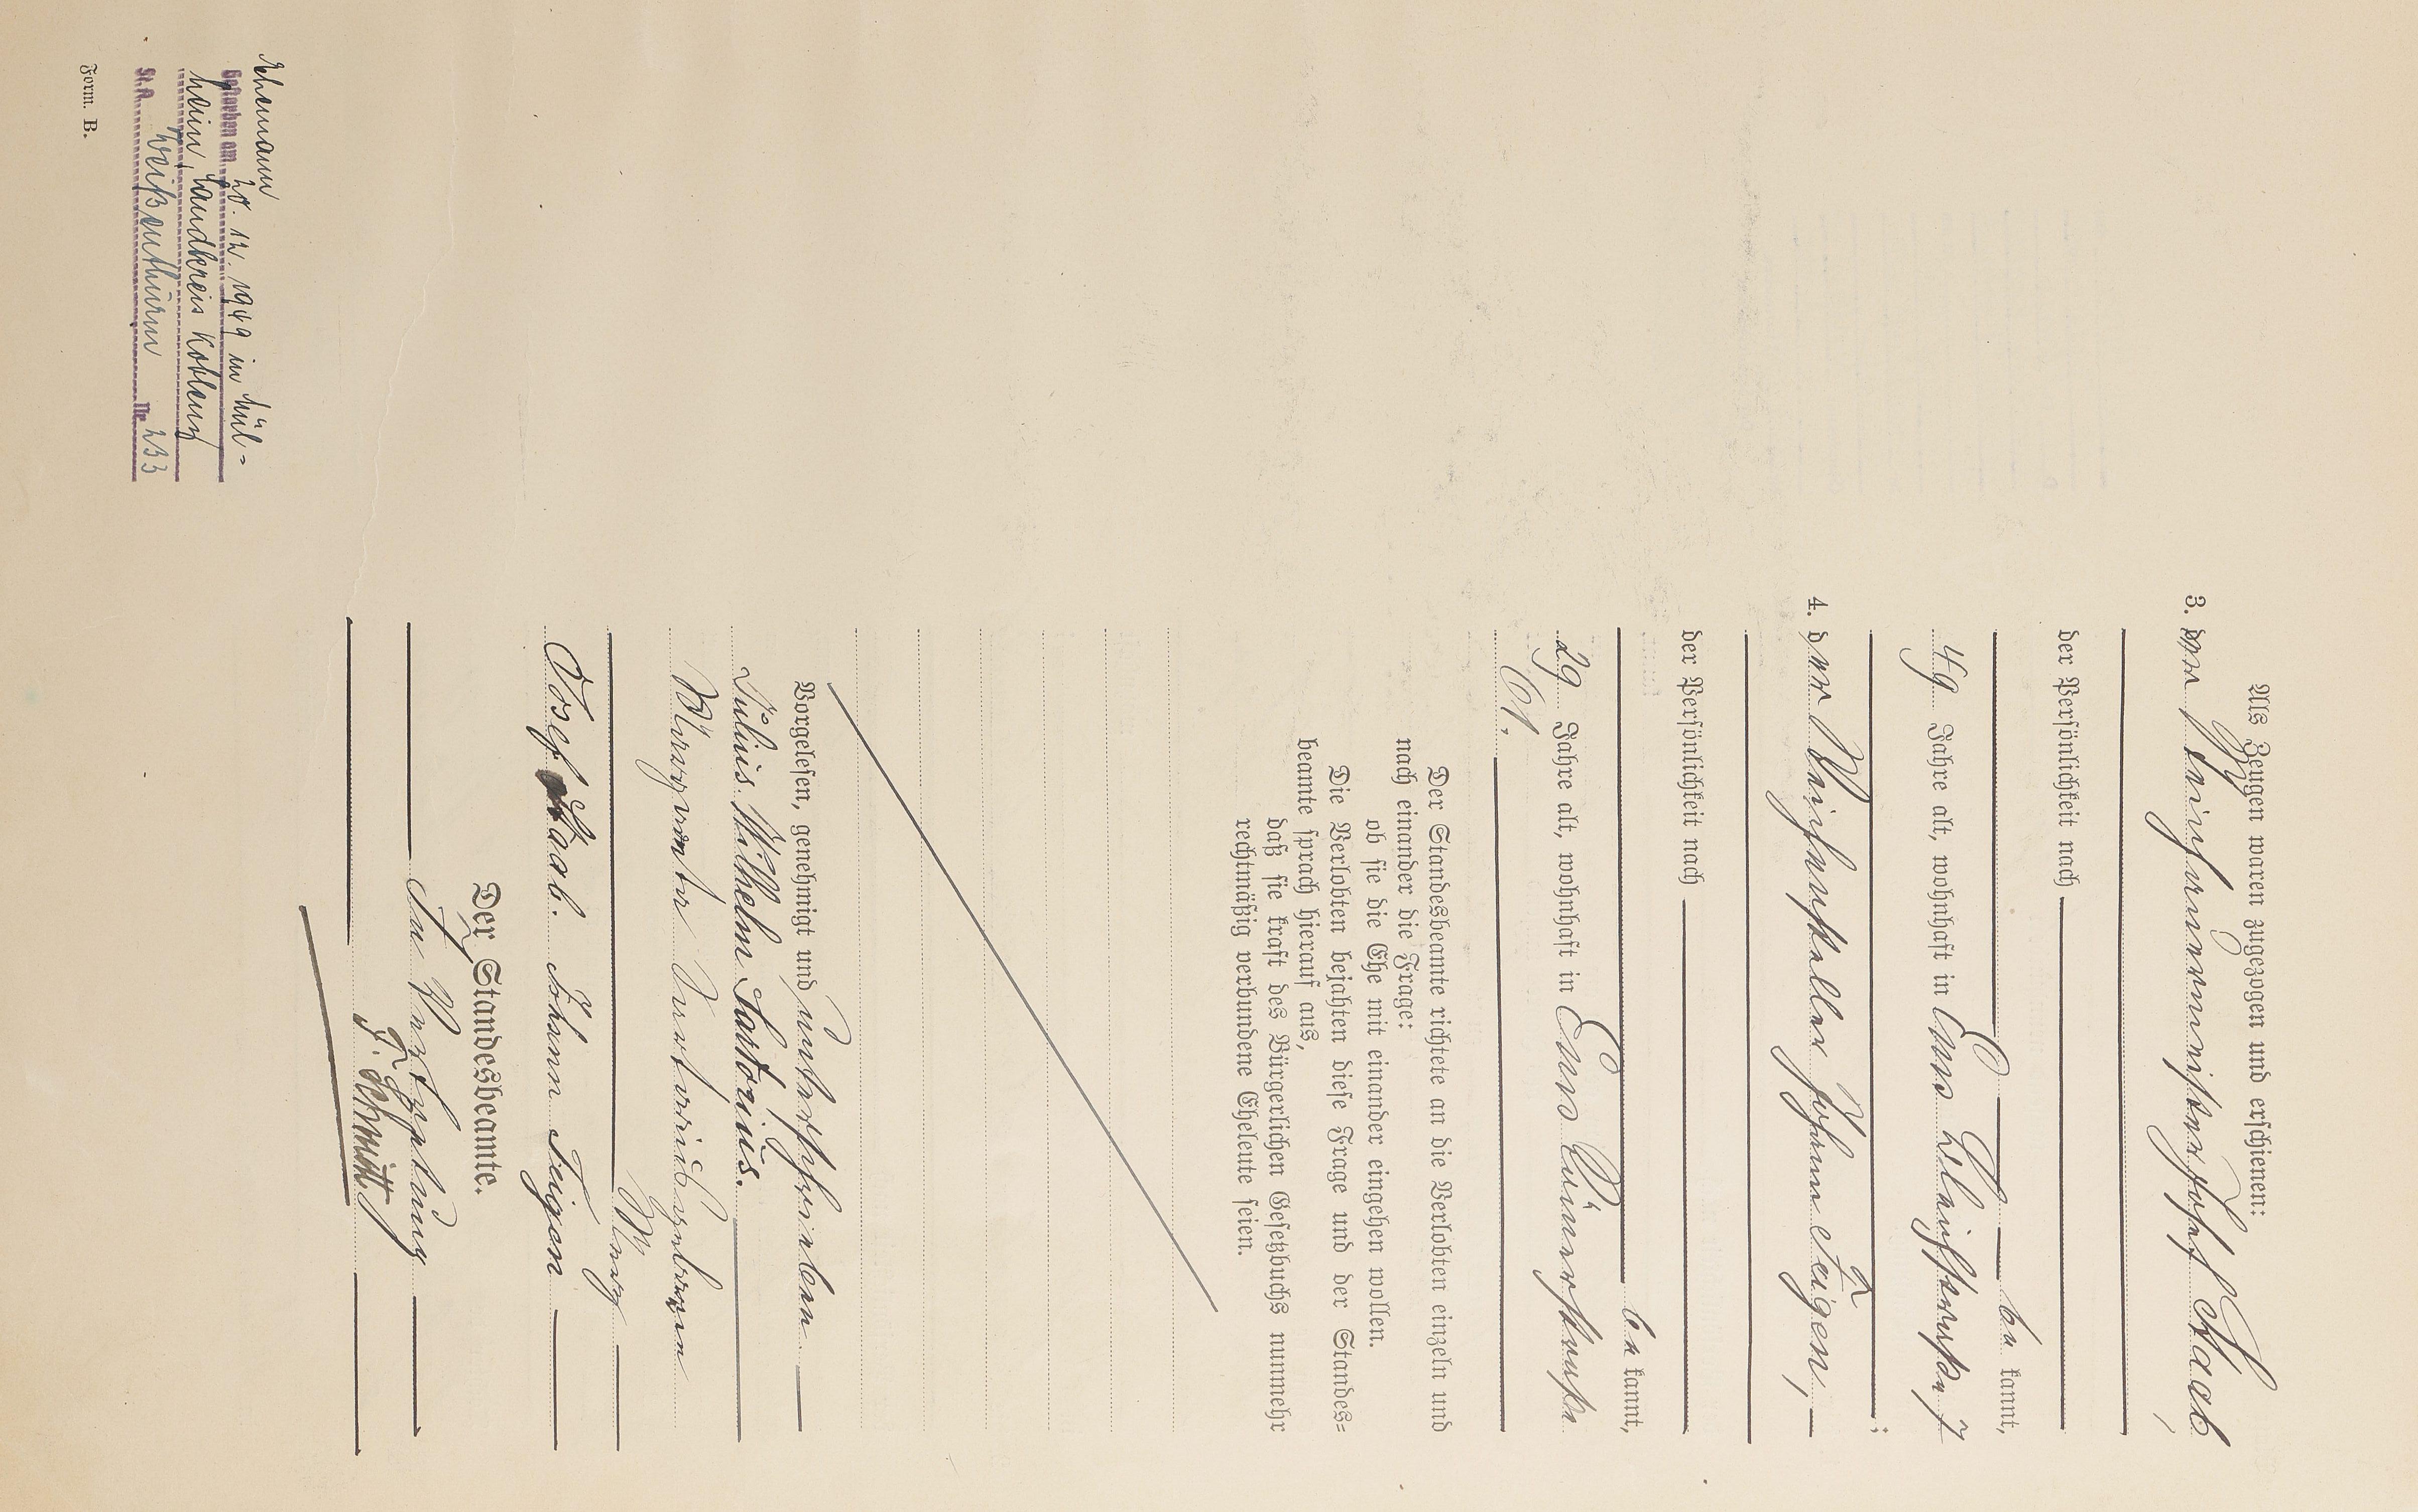 Als Zeugen waren zugezogen und erschienen:
3. der Schreinermeister Josef Staab,
der Persönlichkeit nach
be kannt,
49 Jahre alt, wohnhaft in Ems Bleichstraße 7
;
4. der Johann Feigen,
der Persönlichkeit nach
be kannt,
29 Jahre alt, wohnhaft in Ems Römerstraße
61.
Der Standesbeamte richtete an die Verlobten einzeln und
nach einander die Frage:
ob sie die Ehe mit einander eingehen wollen.
Die Verlobten bejahten diese Frage und der Standes-
beamte sprach hierauf aus,
daß sie kraft des Bürgerlichen Gesetzbuchs nunmehr
rechtmäßig verbundene Eheleute seien.
Vorgelesen, genehmigt und unterschrieben
Julius Wilhelm Sartorius.
Margareta Sartorius geborene
Merz
Josef Staab. Johann Feigen
Der Standesbeamte.
In Vertretung
F. Schmitt
Ehemann
Gestorben am 20. 12. 1949 in Mül-
heim, Landkreis Koblenz
St.A. Weißenthurm Nr. 233
Form. B.